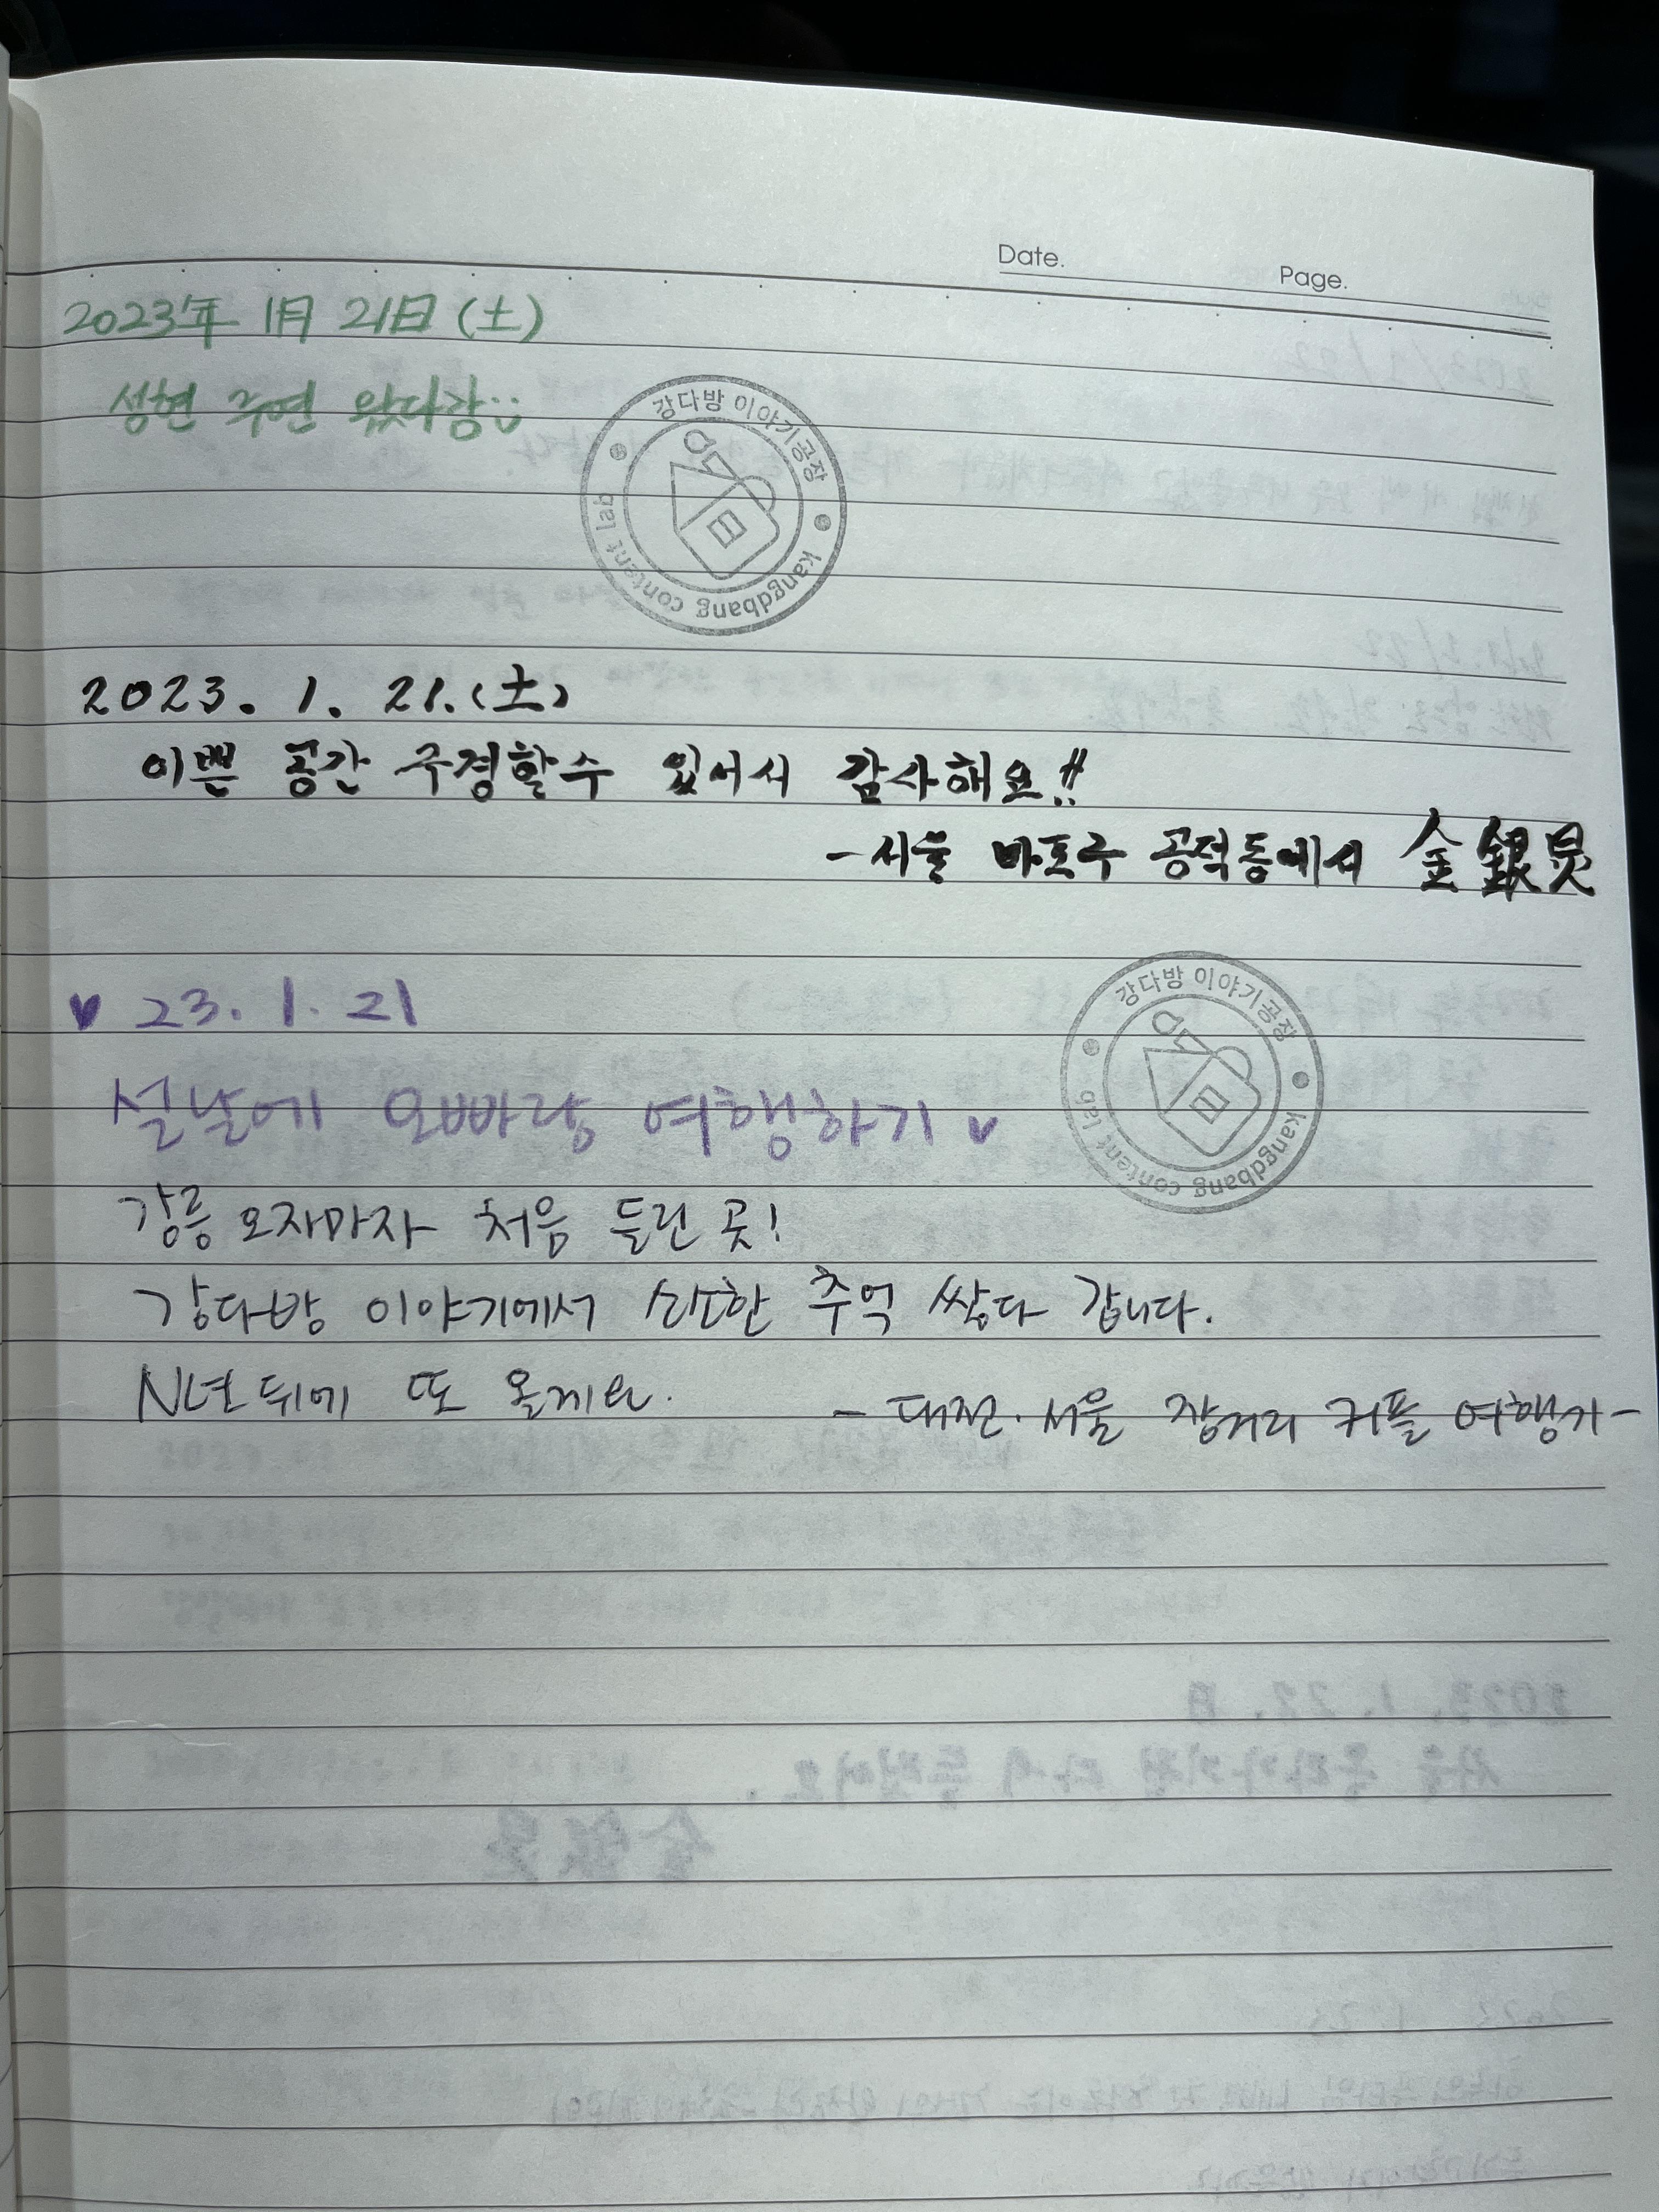 Date.
Page.
2023年 1月 21日 (土)
성현 주연 왔다감
강다방 이야기공장
kangdbang content lab
2023. 1. 21. (土)
이쁜 공간 구경할수 있어서 감사해요!!
- 서울 마포구 공덕동에서 金銀
♥ 23. 1. 21
설날에 오빠랑 여행하기 ♥
강다방 이야기공장
kangdbang content lab
강릉 오자마자 처음 들린 곳!
강다방 이야기에서 추억 쌓다 갑니다.
N년 뒤에 또 올게요.
- 대전·서울 장거리 커플 여행가 -